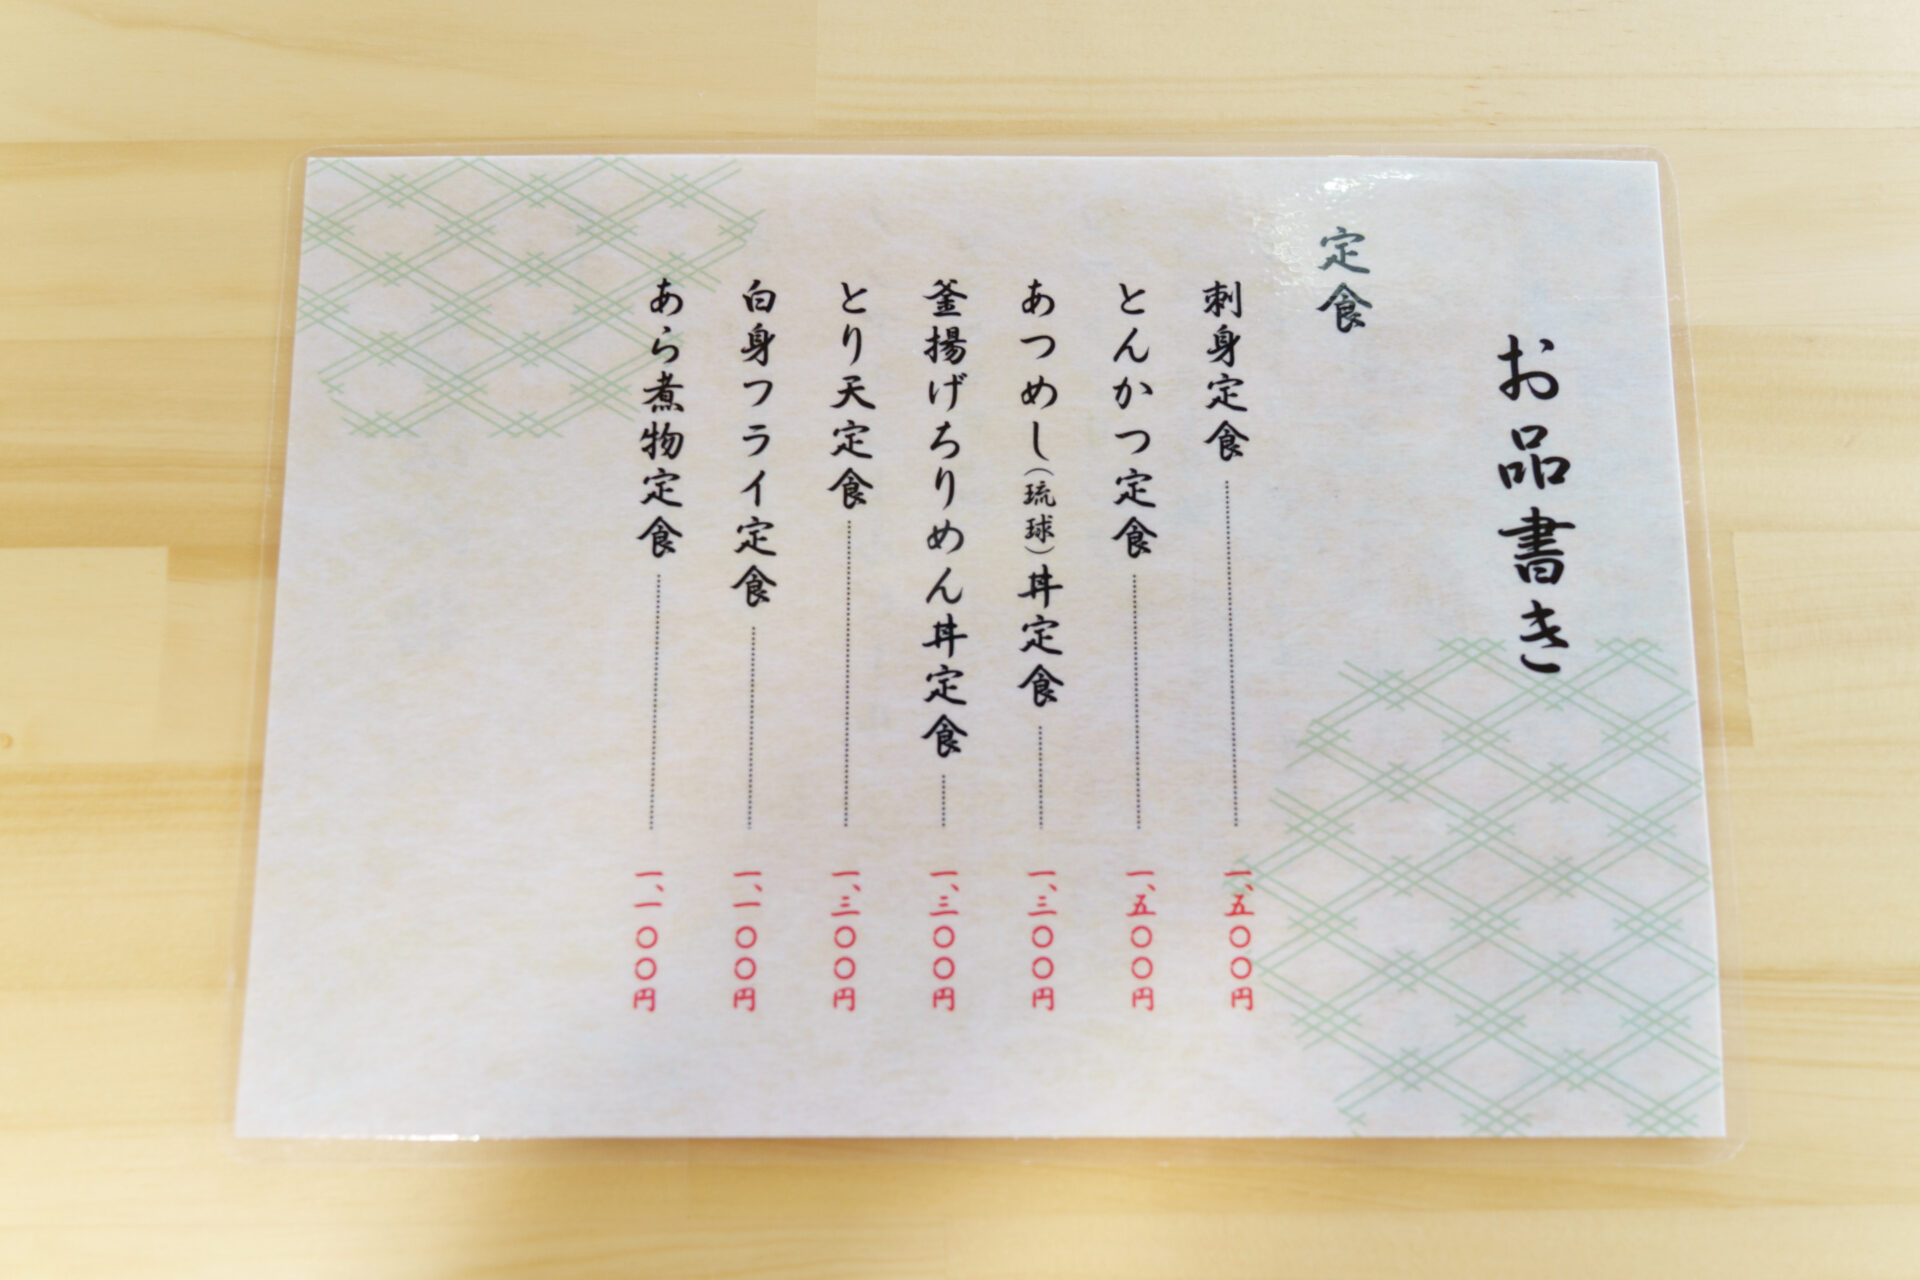 お品書き
定食
刺身定食 一、五〇〇円
とんかつ定食 一、五〇〇円
あつめし(琉球)丼定食 一、三〇〇円
釜揚げちりめん丼定食 一、三〇〇円
とり天定食 一、三〇〇円
白身フライ定食 一、一〇〇円
あら煮物定食 一、一〇〇円